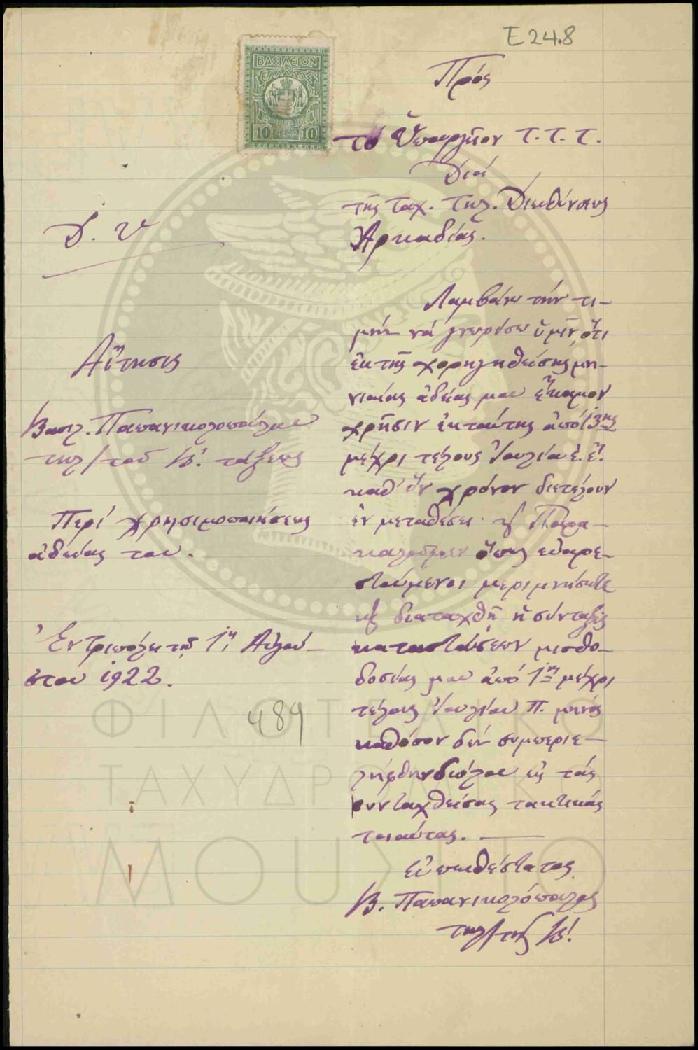 Ε 24.8
ΒΑΣΙΛΕΙΟΝ
10 10
Πρός
τό Ὑπουργεῖον Τ.Τ.Τ.
Διά
τῆς Ταχ. Τηλ. Διευθύνσεως
Ἀρκαδίας.
Δ. Υ
Αἴτησις
Βασιλ. Παπανικολοπούλου
τηλ/τοῦ Β! τάξεως
Περί χρησιμοποιήσεως
ἀδείας του.
Ἐν Τριπόλει τῇ 1ῃ Αὐγού-
στου 1922.
489
Λαμβάνω τήν τι-
μήν νά γνωρίσω ὑμῖν, ὅτι
ἐκ τῆς χορηγηθείσης μη-
νιαίας ἀδείας μου ἔκαμον
χρῆσιν ἐκ ταύτης ἀπό
μέχρι τέλους Ἰουλίου ἐ. ἔ.
καθ' ὅν χρόνον διετέλουν
ἐν μεταθέσει Παρα-
καλοῦμεν ὅπως εὐαρε-
στούμενοι μεριμνήσητε
διαταχθῇ ἡ σύνταξις
καταστάσεων μισθο-
δοσίας μου ἀπό 1ης μέχρι
τέλους Ἰουλίου π. μηνός
καθόσον δέν συμπεριε-
λήφθην διόλου εἰς τάς
συνταχθείσας τακτικάς
τοιαύτας.
Εὐπειθέστατος
Β. Παπανικολόπουλος
τηλ/τής Β!
ΦΙΛΟΤΕΛΙΚΟ
ΤΑΧΥΔΡΟΜΙΚΟ
ΜΟΥΣΕΙΟ